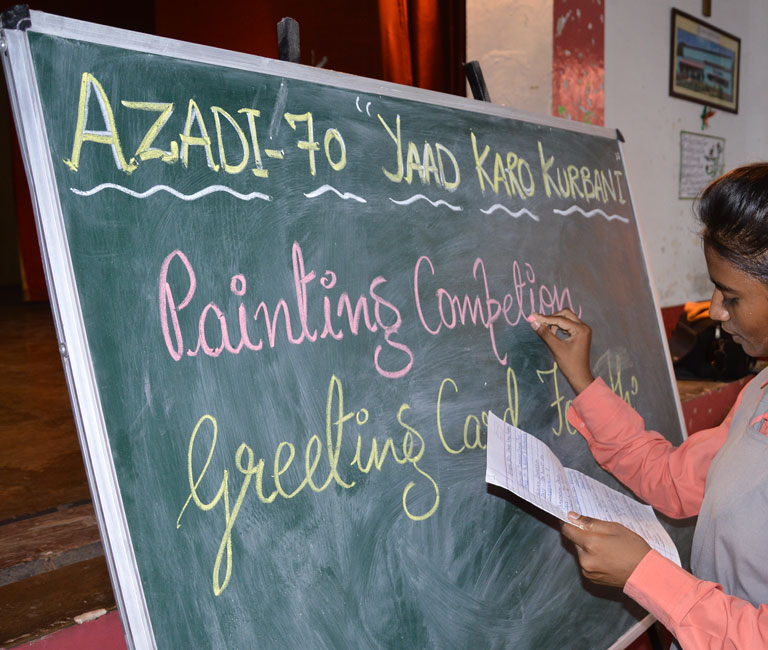 AZADI-70 "YAAD KARO KURBANI"
Painting Competion
Greeting Card